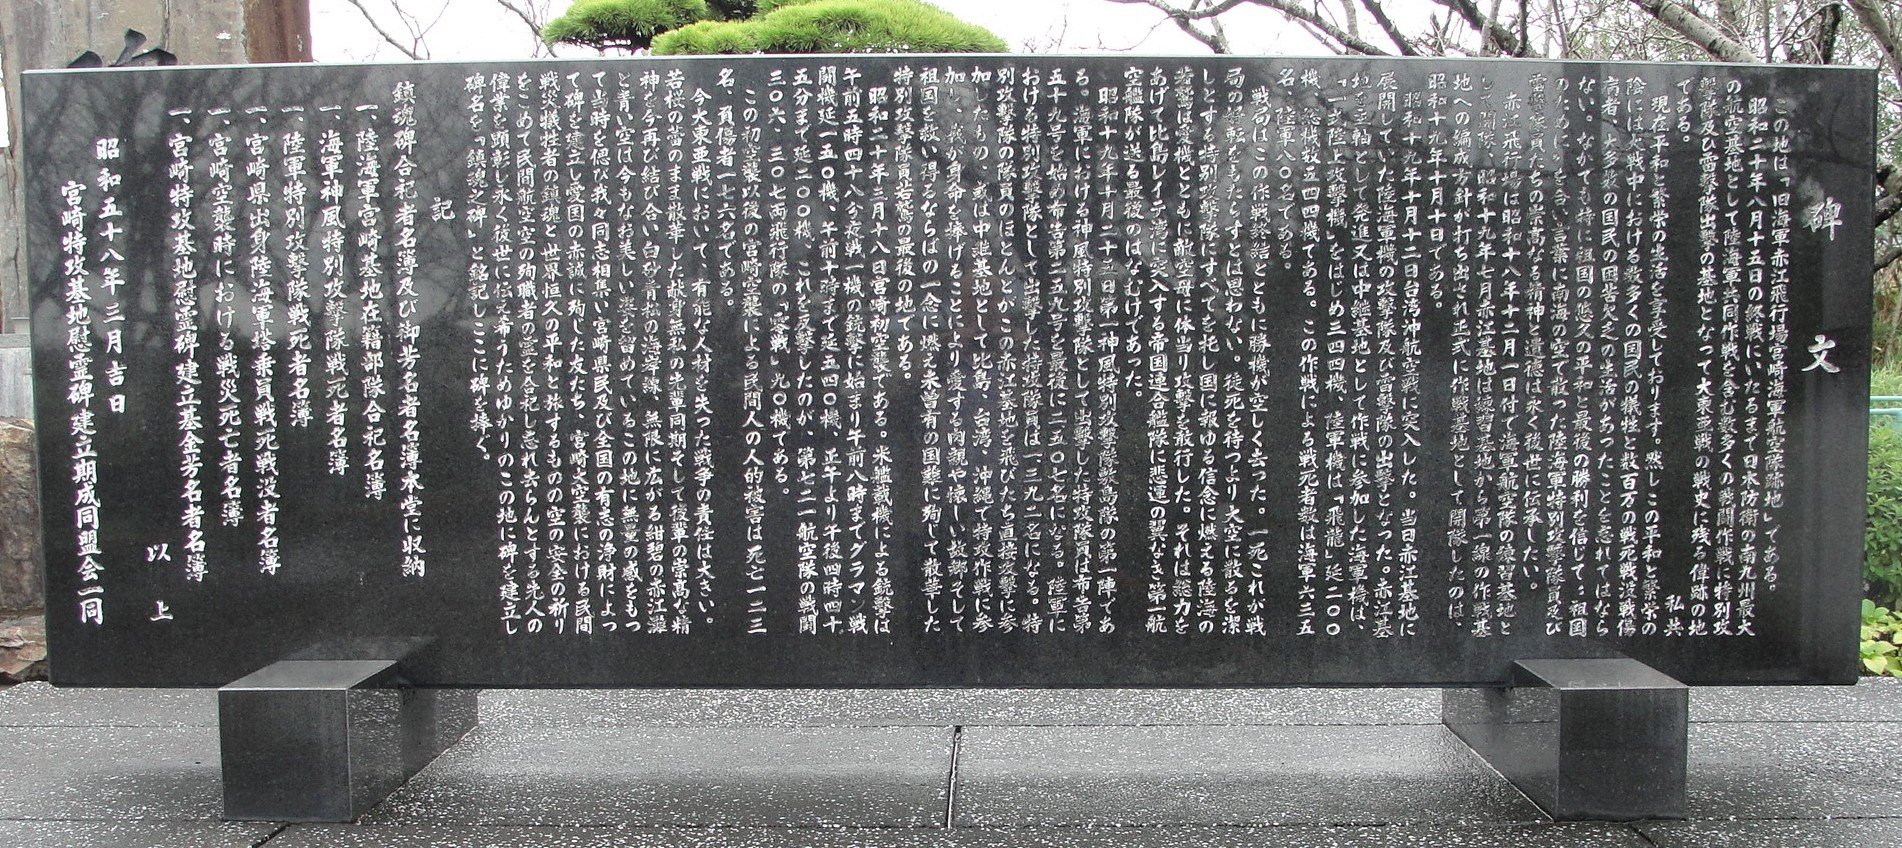 碑文
この地は「旧海軍赤江飛行場宮崎海軍航空隊跡地」である。
昭和二十年八月十五日の終戦にいたるまで日本防衛の南九州最大
の航空基地として陸海軍共同作戦を含む数多くの戦闘作戦に特別攻
撃隊及び雷撃隊出撃の基地となって大東亜戦の戦史に残る偉跡の地
である。 私共
現在平和と繁栄の生活を享受しております。然しこの平和と繁栄の
陰には大戦中における数多くの国民の犠牲と数百万の戦死戦没戦傷
病者、大多数の国民の困苦欠乏の生活があったことを忘れてはなら
ない。なかでも特に祖国の悠久の平和と最後の勝利を信じて、祖国
のためにを合い言葉に南海の空で散った陸海軍特別攻撃隊員及び
雷撃隊員たちの崇高なる精神と遺徳は永く後世に伝承したい。
赤江飛行場は昭和十八年十二月一日付で海軍航空隊の練習基地と
して開隊、昭和十九年七月赤江基地は練習基地から第一線の作戦基
地への編成方針が打ち出され正式に作戦基地として開隊したのは、
昭和十九年十月十日である。
昭和十九年十月十二日台湾沖航空戦に突入した。当日赤江基地に
展開していた陸海軍機の攻撃隊及び雷撃隊の出撃となった。赤江基
地を主軸として発進又は中継基地として作戦に参加した海軍機は、
「一式陸上攻撃機」をはじめ三四四機、陸軍機は「飛龍」延二〇〇
機、総機数五四四機である。この作戦による戦死者数は海軍六三五
名、陸軍八〇名である。
戦局はこの作戦終結とともに勝機が空しく去った。一死これが戦
局の好転をもたらすとは思わない。徒死を待つより大空に散るを潔
しとする特別攻撃隊にすべてを托し国に報ゆる信念に燃える陸海の
若鷲は愛機とともに敵空母に体当り攻撃を敢行した。それは総力を
あげて比島レイテ湾に突入する帝国連合艦隊に悲運の翼なき第一航
空艦隊が送る最後のはなむけであった。
昭和十九年十月二十五日第一神風特別攻撃隊敷島隊の第一陣であ
る。海軍における神風特別攻撃隊として出撃した特攻隊員は布告第
五十九号を始め布告第二五九号を最後に二五〇七名になる。陸軍に
おける特別攻撃隊として出撃した特攻隊員は一三九二名になる。特
別攻撃隊の隊員のほとんどがこの赤江基地を飛びたち直接攻撃に参
加したもの、或は中継基地として比島、台湾、沖縄で特攻作戦に参
加し、我が身命を捧げることにより愛する肉親や懐しい故郷そして
祖国を救い得るならばの一念に燃え未曽有の国難に殉じて散華した
特別攻撃隊員若鷲の最後の地である。
昭和二十年三月十八日宮崎初空襲である。米艦載機による銃撃は
午前五時四十八分夜戦一機の銃撃に始まり午前八時までグラマン戦
闘機延一五〇機、午前十時まで延五四〇機、正午より午後四時四十
五分まで延二〇〇機、これを反撃したのが、第七二一航空隊の戦闘
三〇六、三〇七両飛行隊の「零戦」九〇機である。
この初空襲以後の宮崎空襲による民間人の人的被害は死亡一二三
名、負傷者一七六名である。
今大東亜戦において、有能な人材を失った戦争の責任は大きい。
若桜の蕾のまま散華した献身無私の先輩同期そして後輩の崇高な精
神を今再び結び合い白砂青松の海岸薄、無限に広がる紺碧の赤江灘
と青い空は今もなお美しい姿を留めているこの地に無量の感をもっ
て当時を偲び我々同志相集い宮崎県民及び全国の有志の浄財によっ
て碑を建立し愛国の赤誠に殉じた友たち、宮崎大空襲における民間
戦災犠牲者の鎮魂と世界恒久の平和と旅するものの空の安全の祈り
をこめて民間航空の殉職者の霊を合祀し忘れ去らんとする先人の
偉業を顕彰し永く後世に伝え希うためゆかりのこの地に碑を建立し
碑名を「鎮魂之碑」と銘記しここに碑を捧ぐ。
記
鎮魂碑合祀者名簿及び御芳名者名簿本堂に収納
一、陸海軍宮崎基地在籍部隊合祀名簿
一、海軍神風特別攻撃隊戦死者名簿
一、陸軍特別攻撃隊戦死者名簿
一、宮崎県出身陸海軍搭乗員戦死戦没者名簿
一、宮崎空襲時における戦災死亡者名簿
一、宮崎特攻基地慰霊碑建立基金芳名者名簿
以上
昭和五十八年三月吉日
宮崎特攻基地慰霊碑建立期成同盟会一同